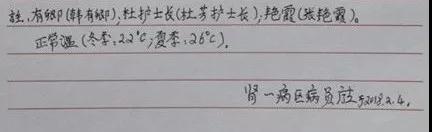 注.有卿(韩有卿);杜护士长(杜芳护士长);艳霞(张艳霞)。
正常温(冬季:22°C;夏季:26°C).
肾一病区病员 2018.2.4.